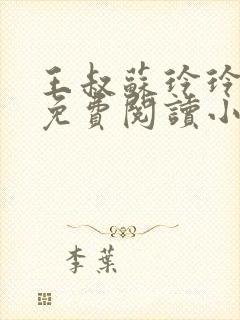 王叔蘇玲玲
免費閱讀小
李葉